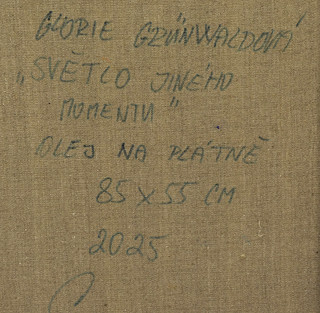 GLORIE GRÜNWALDOVÁ
„SVĚTLO JINÉHO
MOMENTU"
OLEJ NA PLÁTNĚ
85 X 55 CM
2025